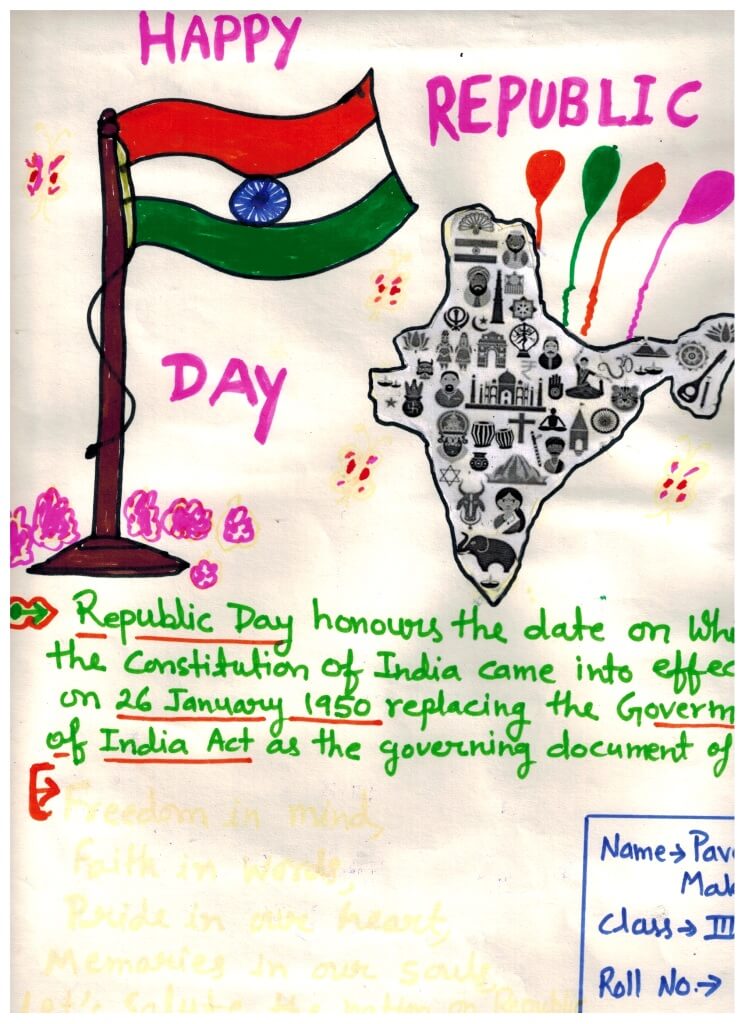 HAPPY
REPUBLIC
DAY
Republic Day honours the date on Whe
the Constitution of India came into effec
on 26 January 1950 replacing the Governm
of India Act as the governing document of
Freedom in mind,
Faith in words,
Pride in our heart,
Memories in our souls,
Let's Salute the nation on Republic
Name→ Pav
Mak
Class→ III
Roll No.→